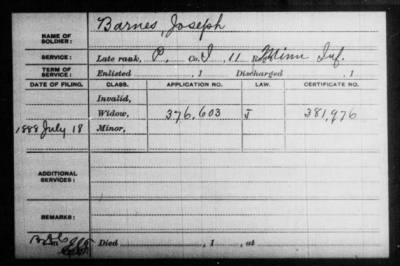 Barnes, Joseph
NAME OF SOLDIER:
SERVICE: Late rank, P, Co. I, 11 Minn Inf.
TERM OF SERVICE: Enlisted , 1 Discharged , 1
DATE OF FILING. CLASS. APPLICATION NO. LAW. CERTIFICATE NO.
Invalid,
Widow, 376,603 J 381,976
1888 July 18 Minor,
ADDITIONAL SERVICES:
REMARKS:
Died , 1 , at